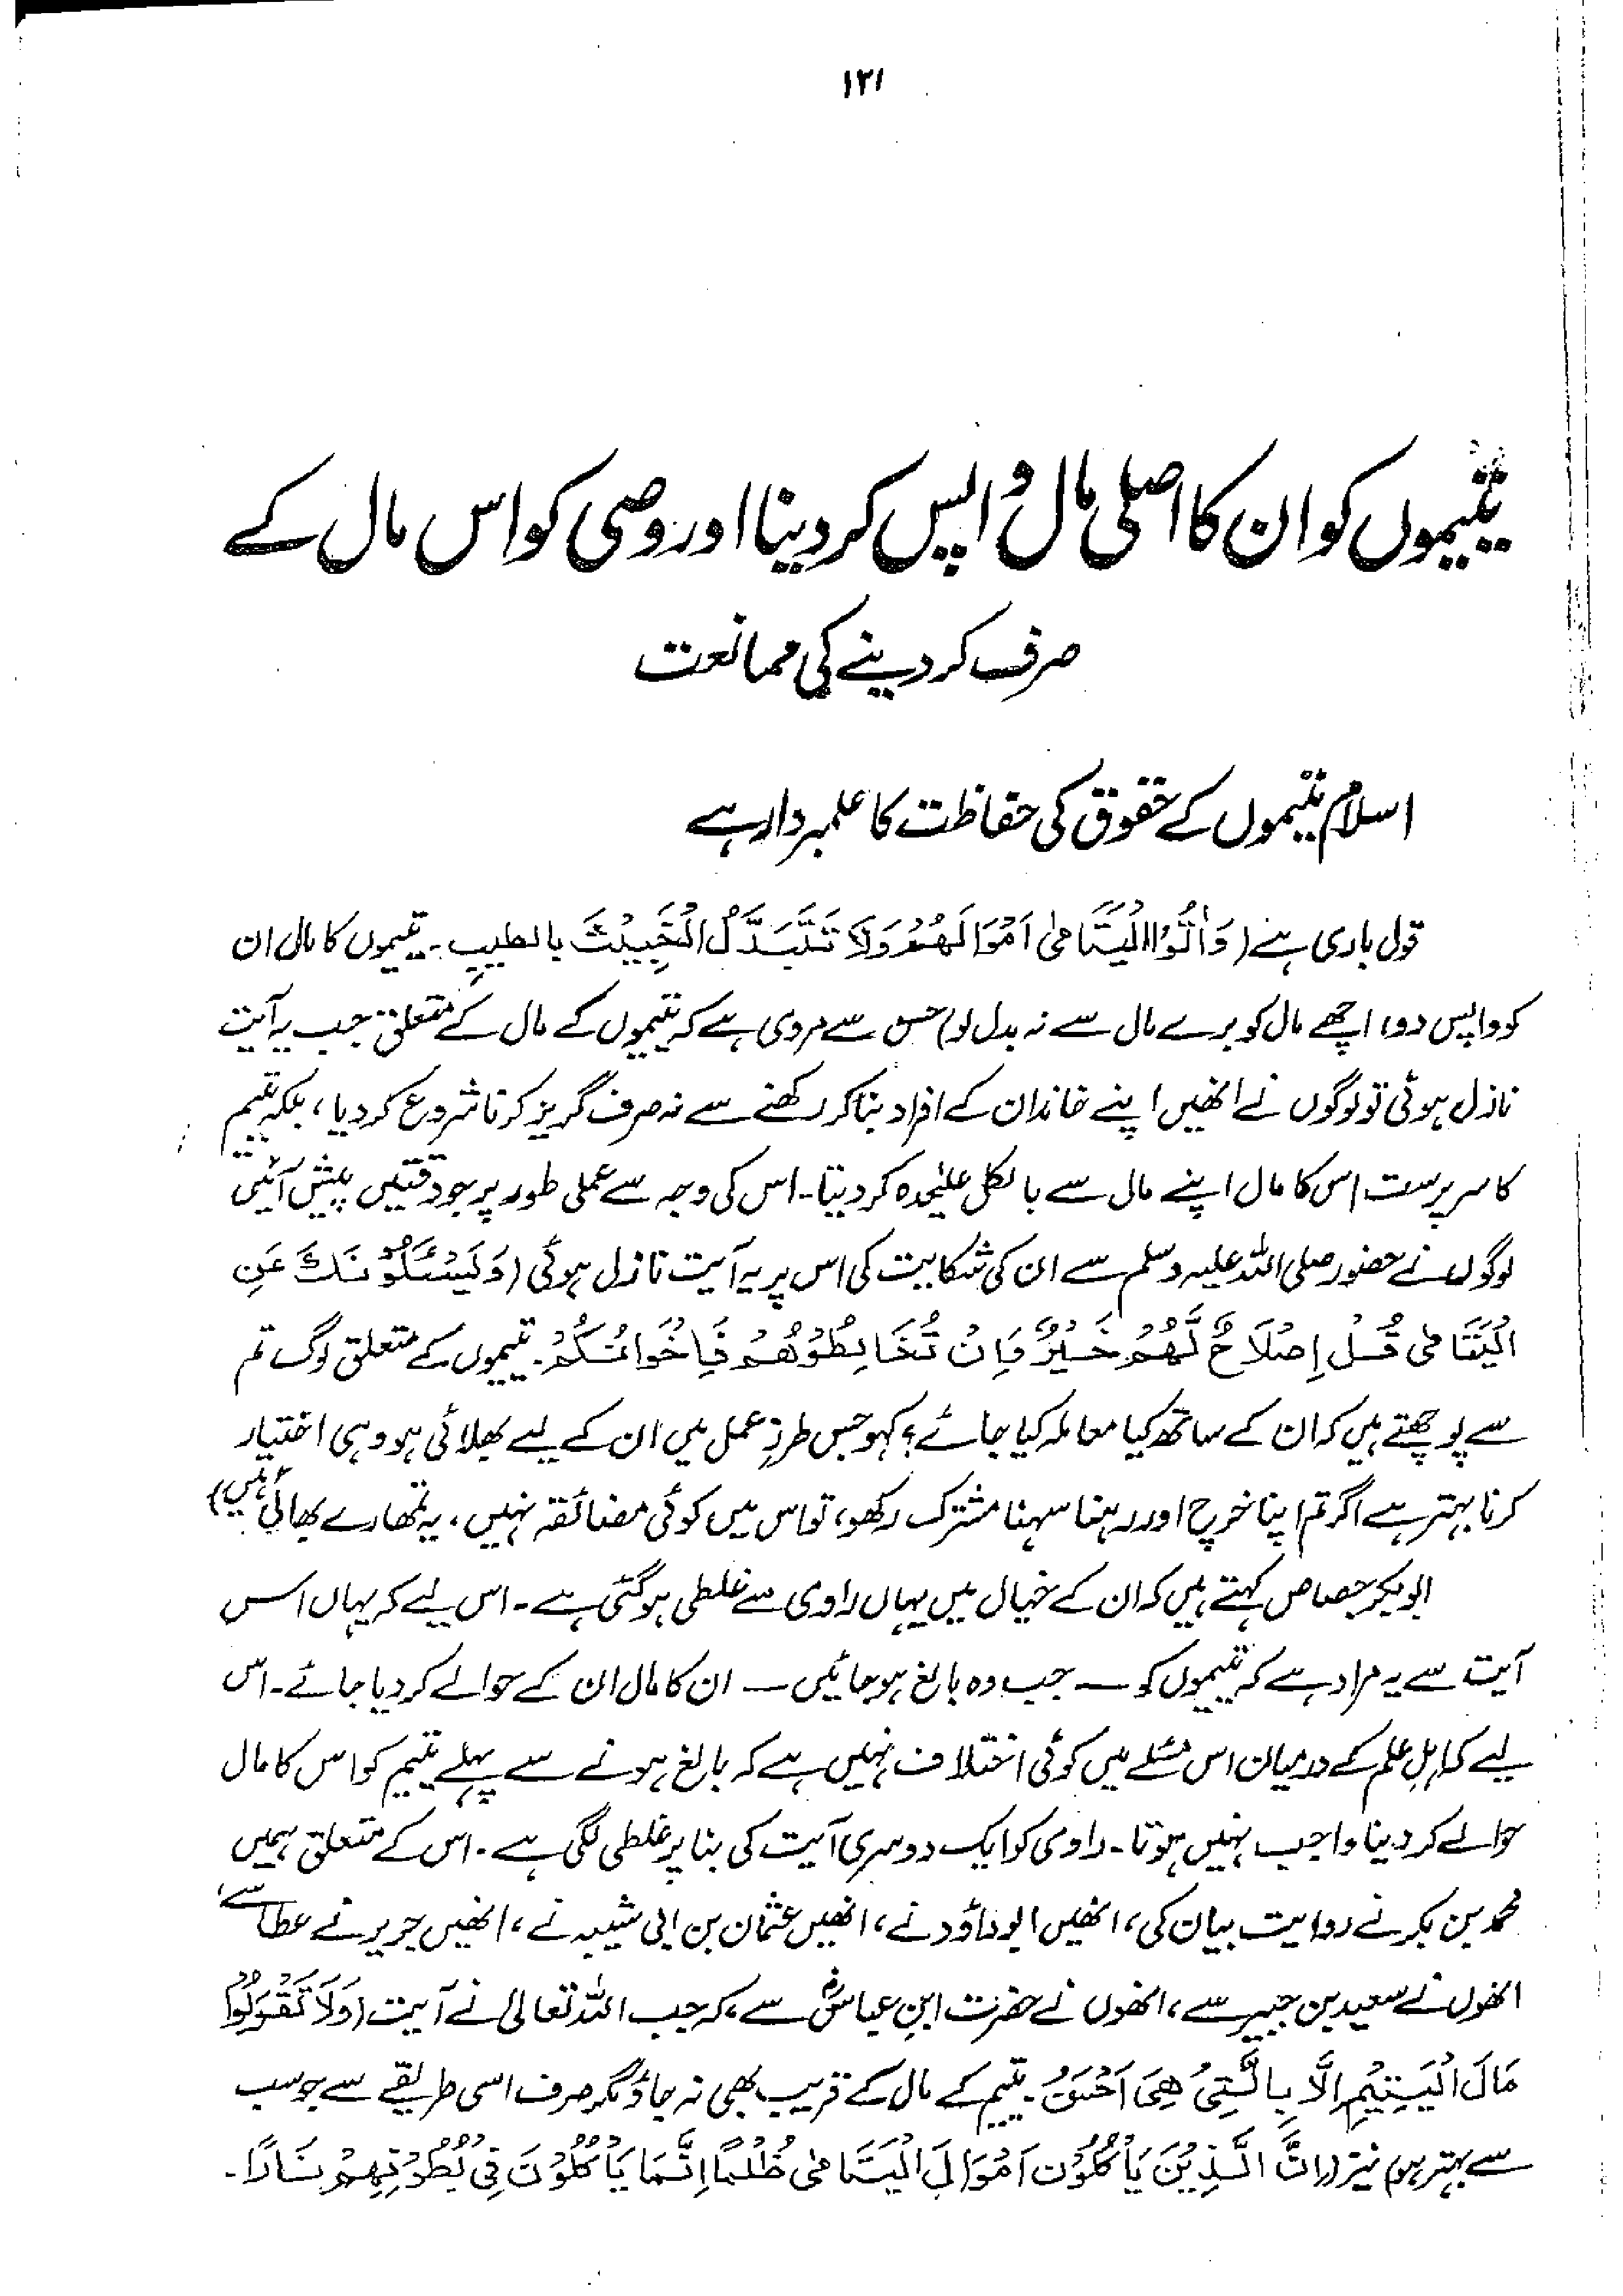 ۱۲۱
یتیموں کو ان کا اصلی مال واپس کر دینا اور وصی کو اس مال کے
صرف کر دینے کی ممانعت
اسلام یتیموں کے حقوق کی حفاظت کا علمبردار ہے
قول باری ہے (وَاٰتُوا الْيَتَامٰى اَمْوَالَهُمْ وَلَا تَتَبَدَّلُ الْخَبِيْثَ بالطیبِ۔ یتیموں کا مال ان
کو واپس دو، اچھے مال کو برے مال سے نہ بدل لو) حسن سے مروی ہے کہ یتیموں کے مال کے متعلق جب یہ آیت
نازل ہوئی تو لوگوں نے انھیں اپنے خاندان کے افراد بنا کر رکھنے سے نہ صرف گریز کرنا شروع کر دیا، بلکہ یتیم
کا سرپرست اس کا مال اپنے مال سے بالکل علیٰحدہ کر دیتا۔ اس کی وجہ سے عملی طور پر جو دقتیں پیش آئیں
لوگوں نے حضور صلی اللہ علیہ وسلم سے ان کی شکایت کی اس پر یہ آیت نازل ہوئی (وَيَسْئَلُوْنَكَ عَنِ
الْيَتَامٰى قُلْ إِصْلَاحٌ لَّهُمْ خَيْرٌ وَاِنْ تُخَالِطُوْهُمْ فَاِخْوَانُكُمْ۔ یتیموں کے متعلق لوگ تم
سے پوچھتے ہیں کہ ان کے ساتھ کیا معاملہ کیا جائے؟ کہو جس طرزِ عمل میں ان کے لیے بھلائی ہو وہی اختیار
کرنا بہتر ہے اگر تم اپنا خرچ اور رہنا سہنا مشترک رکھو، تو اس میں کوئی مضائقہ نہیں، یہ تمھارے بھائی ہیں)
ابوبکر جصاص کہتے ہیں کہ ان کے خیال میں یہاں راوی سے غلطی ہو گئی ہے۔ اس لیے کہ یہاں اس
آیت سے یہ مراد ہے کہ یتیموں کو — جب وہ بالغ ہو جائیں — ان کا مال ان کے حوالے کر دیا جائے۔ اس
لیے کہ اہلِ علم کے درمیان اس مسئلے میں کوئی اختلاف نہیں ہے کہ بالغ ہونے سے پہلے یتیم کو اس کا مال
حوالے کر دینا واجب نہیں ہوتا۔ راوی کو ایک دوسری آیت کی بنا پر غلطی لگی ہے۔ اس کے متعلق ہمیں
محمد بن بکر نے روایت بیان کی، انھیں ابوداؤد نے، انھیں عثمان بن ابی شیبہ نے، انھیں جریر نے عطا سے،
انھوں نے سعید بن جبیر سے، انھوں نے حضرت ابن عباسؓ سے، کہ جب اللہ تعالیٰ نے آیت (وَلَا تَقْرَبُوْا
مَالَ الْيَتِيْمِ اِلَّا بِالَّتِيْ هِيَ اَحْسَنُ۔ یتیم کے مال کے قریب بھی نہ جاؤ مگر صرف اسی طریقے سے جو سب
سے بہتر ہو) نیز (اِنَّ الَّذِيْنَ يَأْكُلُوْنَ اَمْوَالَ الْيَتَامٰى ظُلْمًا اِنَّمَا يَأْكُلُوْنَ فِيْ بُطُوْنِهِمْ نَارًا۔